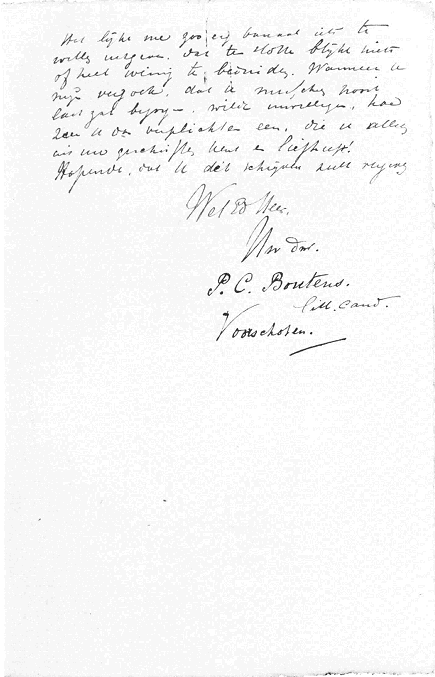 Het lijkt me zoo erg banaal iets te
willen uitgeven, dat ten slotte blijkt niets
of heel weinig te beduiden. Wanneer u
mijn verzoek, dat u misschien nooit
last zal bezorgen, wilde inwilligen, hoe
zeer u dan verplichten een, die u alleen
uit uw geschriften kent en liefheeft!
Hopende, dat u dit schrijven zult
Wel Ed Heer,
Uw dnr.
P. C. Boutens.
Litt. Cand.
Voorschoten.